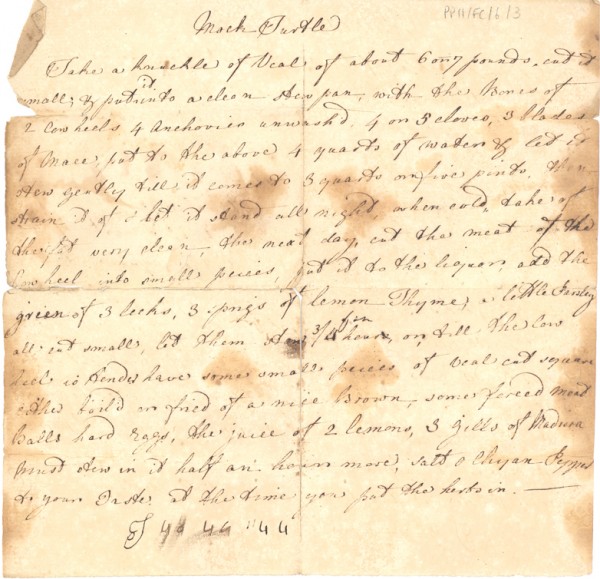 Mock Turtle
PP11/FC/6/3
Take a knuckle of Veal of about 6 or 7 pounds, cut it
small, & put it into a clean stew pan, with the Bones of
2 Cowheels 4 Anchovies unwash'd. 4 or 5 cloves, 3 blades
of Mace, put to the above 4 quarts of water & let it
stew gently till it comes to 3 quarts or five pints, then
strain it of & let it stand all night, when cold, take of
the fat very clean, the next day cut the meat of the
Cowheel into small peices, put it to the liquor, add the
green of 3 leeks, 3 sprigs of lemon Thyme, a little Parsley
all cut small, let them stew 3/4 of an hour, or till the Cow
heel is tender have some small peices of Veal cut square
either boil'd or fried of a nice brown, some forced meat
balls hard Eggs, the juice of 2 lemons, 3 Gills of Madira
must stew in it half an hour more, salt & Chyan Pepper
to your Taste, at the time you put the herbs in.
44 44 44